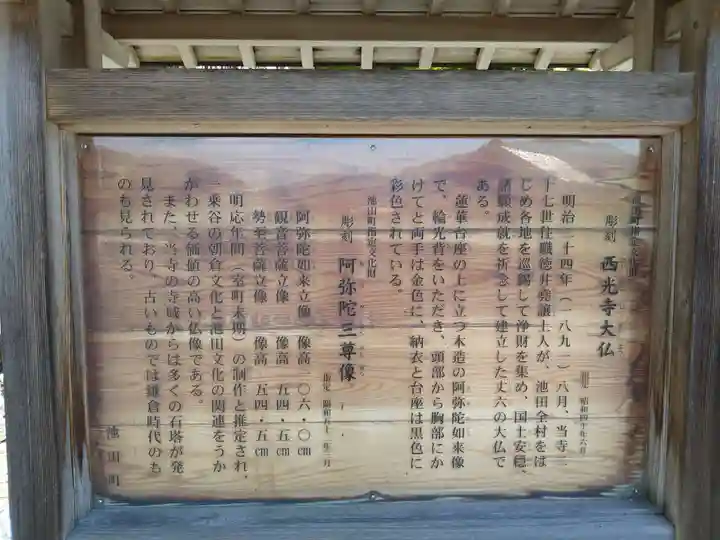 池田町指定文化財
彫刻 西光寺大仏
指定 昭和四十年六月
明治二十四年(一八九一)八月、当寺二
十七世住職徳井堯譲上人が、池田全村をは
じめ各地を巡錫して浄財を集め、国土安穏、
諸願成就を祈念して建立した丈六の大仏で
ある。
蓮華台座の上に立つ木造の阿弥陀如来像
で、輪光背をいただき、頭部から胸部にか
けてと両手は金色に、納衣と台座は黒色に
彩色されている。
池田町指定文化財
彫刻 阿弥陀三尊像
阿弥陀如来立像 像高 一〇六・〇㎝
観音菩薩立像 像高 五四・五㎝
勢至菩薩立像 像高 五四・五㎝
明応年間(室町末期)の制作と推定され、
一乗谷の朝倉文化と池田文化の関連をうか
がわせる価値の高い仏像である。
また、当寺の寺域からは多くの石塔が発
見されており、古いものでは鎌倉時代のも
のも見られる。
池田町